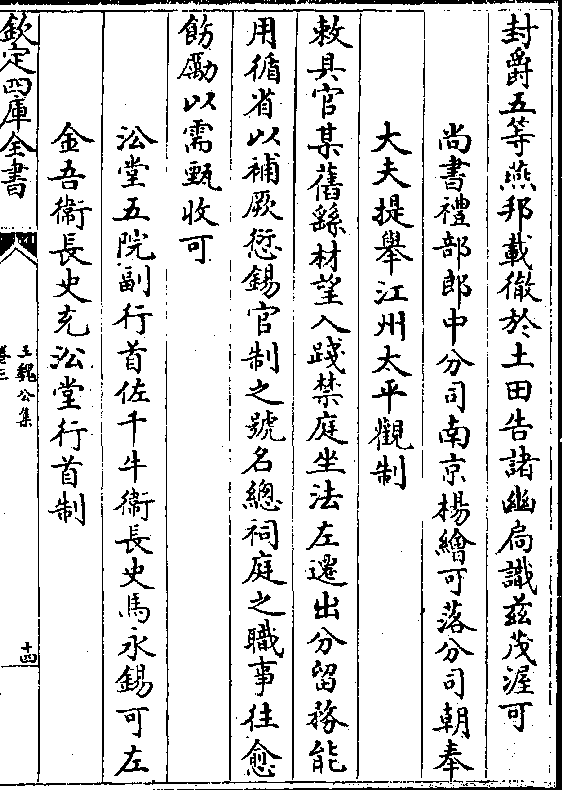 封爵五等燕邦載徹於土田告諸幽扃識兹茂渥可
尚書禮部郎中分司南京楊繪可落分司朝奉
大夫提舉江州太平觀制
敕具官某舊繇材望入踐禁庭坐法左遷出分留務能
用循省以補厥愆錫官制之號名總祠庭之職事往愈
飭勵以需甄收可
㳂堂五院副行首佐千牛衛長史馬永錫可左
金吾衛長史充㳂堂行首制
欽定四庫全書
王魏公集
卷三
十四